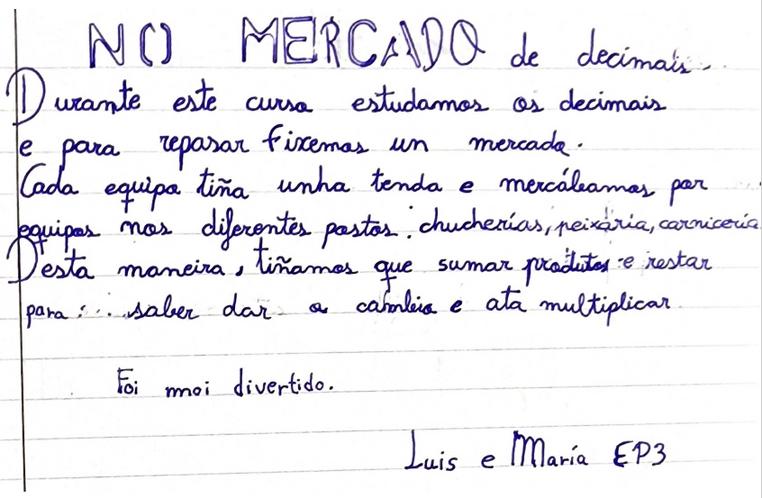 NO MERCADO de decimais.
Durante este curso estudamos os decimais
e para repasar fixemos un mercado.
Cada equipo tiña unha tenda e mercábamos por
equipos nos diferentes postos: chucherías, peixaría, carnicería
Desta maneira, tiñamos que sumar produtos e restar
para saber dar o cambio e ata multiplicar
Foi moi divertido.
Luis e María EP3